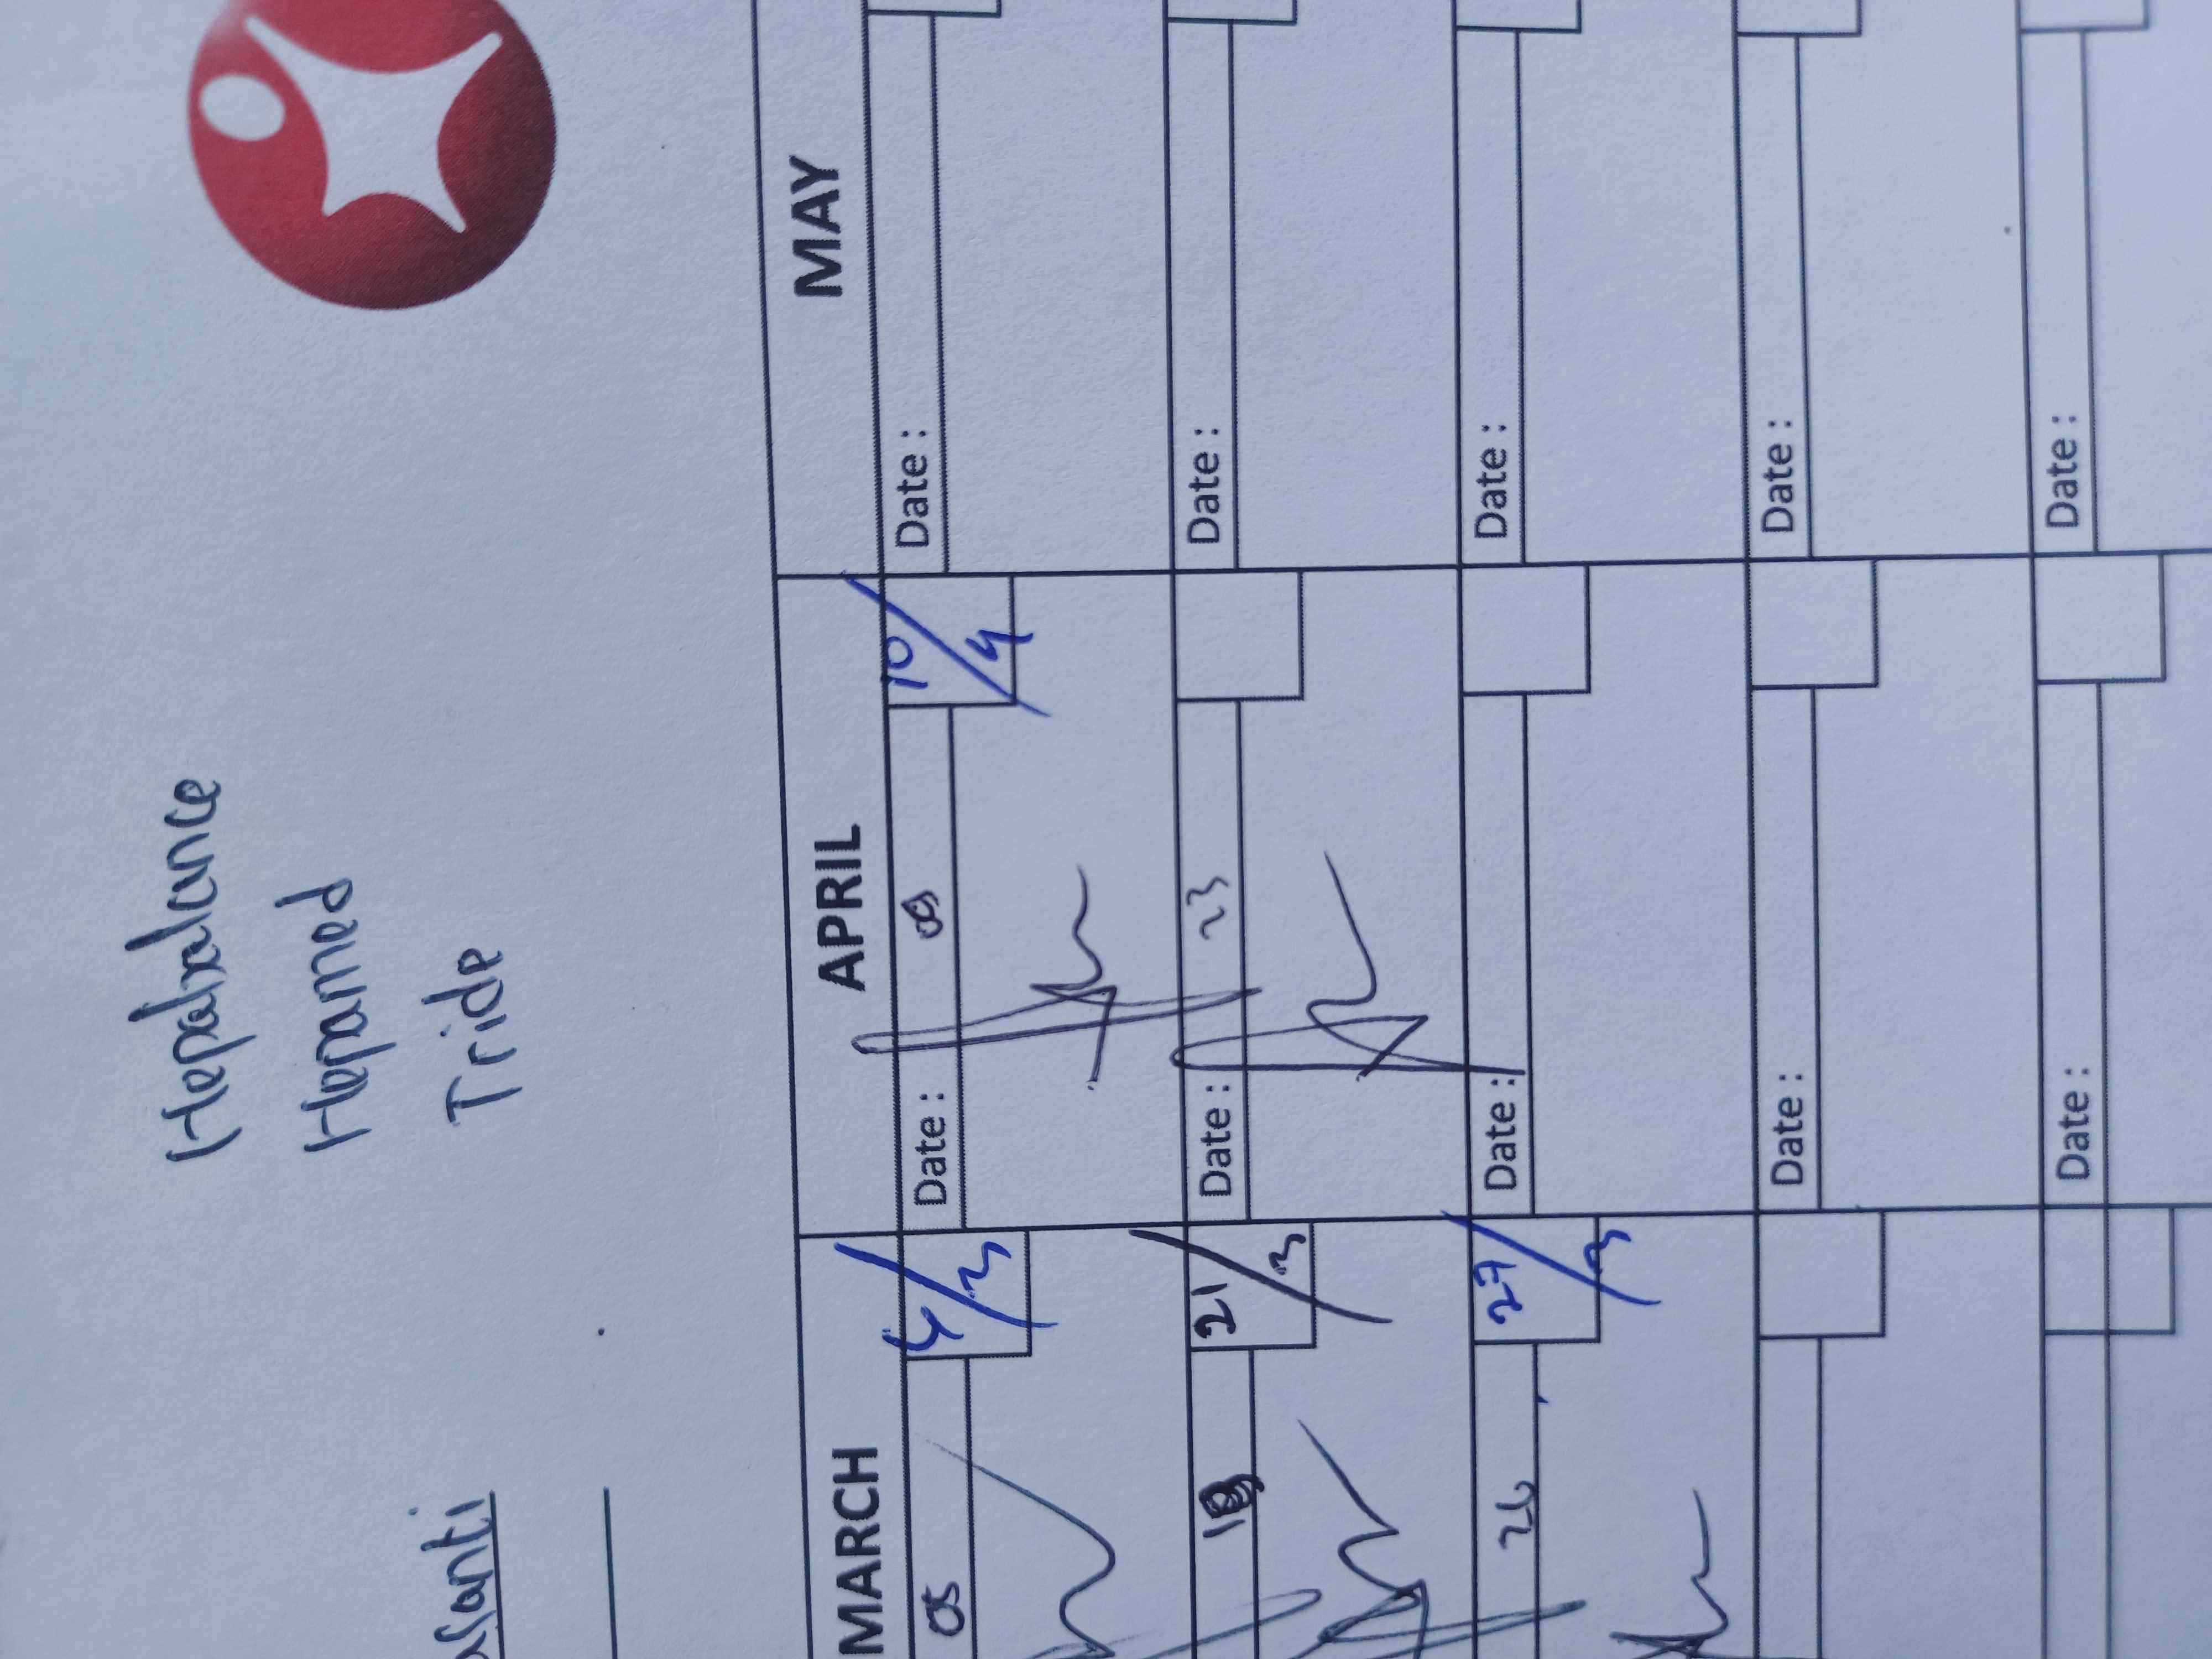 Hepabalance
Hepamed
Tride
MARCH
APRIL
MAY
05
4/3
Date :
09
10/4
Date :
18
21/3
Date :
23
Date :
26
27/3
Date :
Date :
Date :
Date :
Date :
Date :